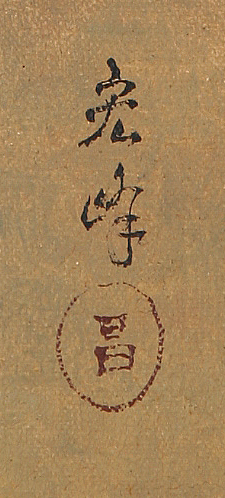 宏峰
昌